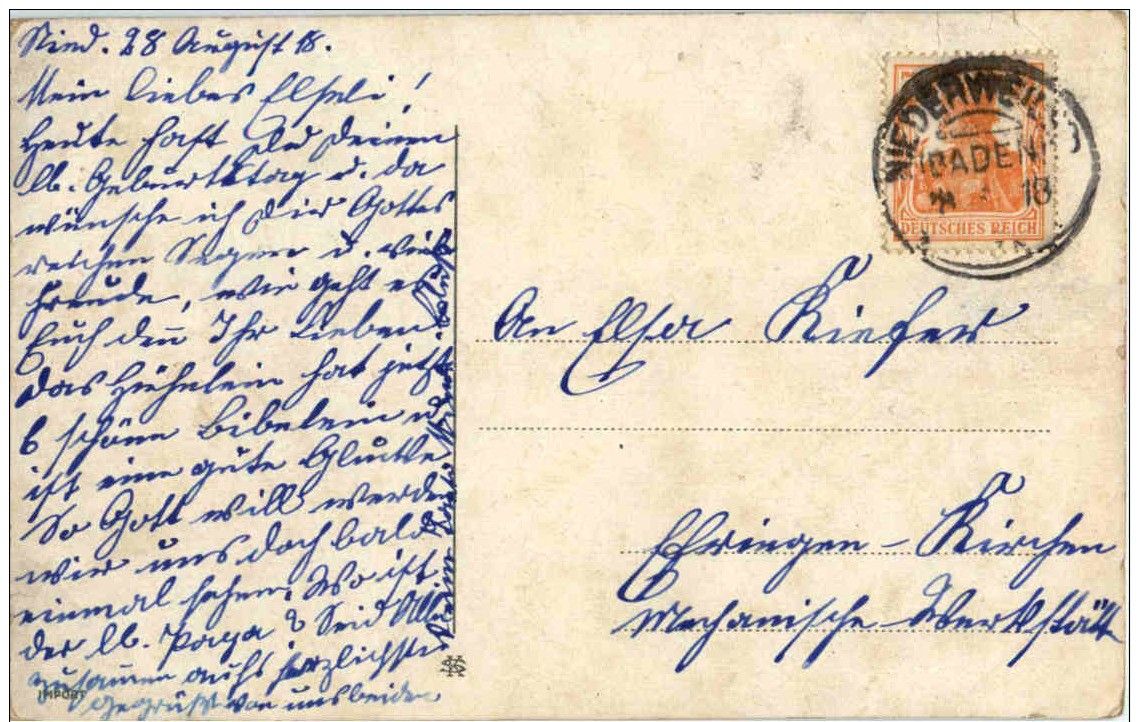 Nied. 28 August 18.
Mein liebes Elseli!
Heute hast Du Deinen
lb. Geburtstag u. da
wünsche ich Dir Gottes
reichen Segen u. viel
Freude, wie geht es
Euch den Ihr Lieben
das Hühnlein hat jetzt
6 schöne Bibelein u.
ist eine gute Glucke
So Gott will werden
wir uns doch bald
einmal sehen. Wo ist
der lb. Papa? Seid Alle
zusammen aufs herzlichste
gegrüßt von uns beiden
Deine
NIEDERWEILER
(BADEN)
18
DEUTSCHES REICH
An Elsa Kiefer
Efringen-Kirchen
Mechanische Werkstätte
IMPORT